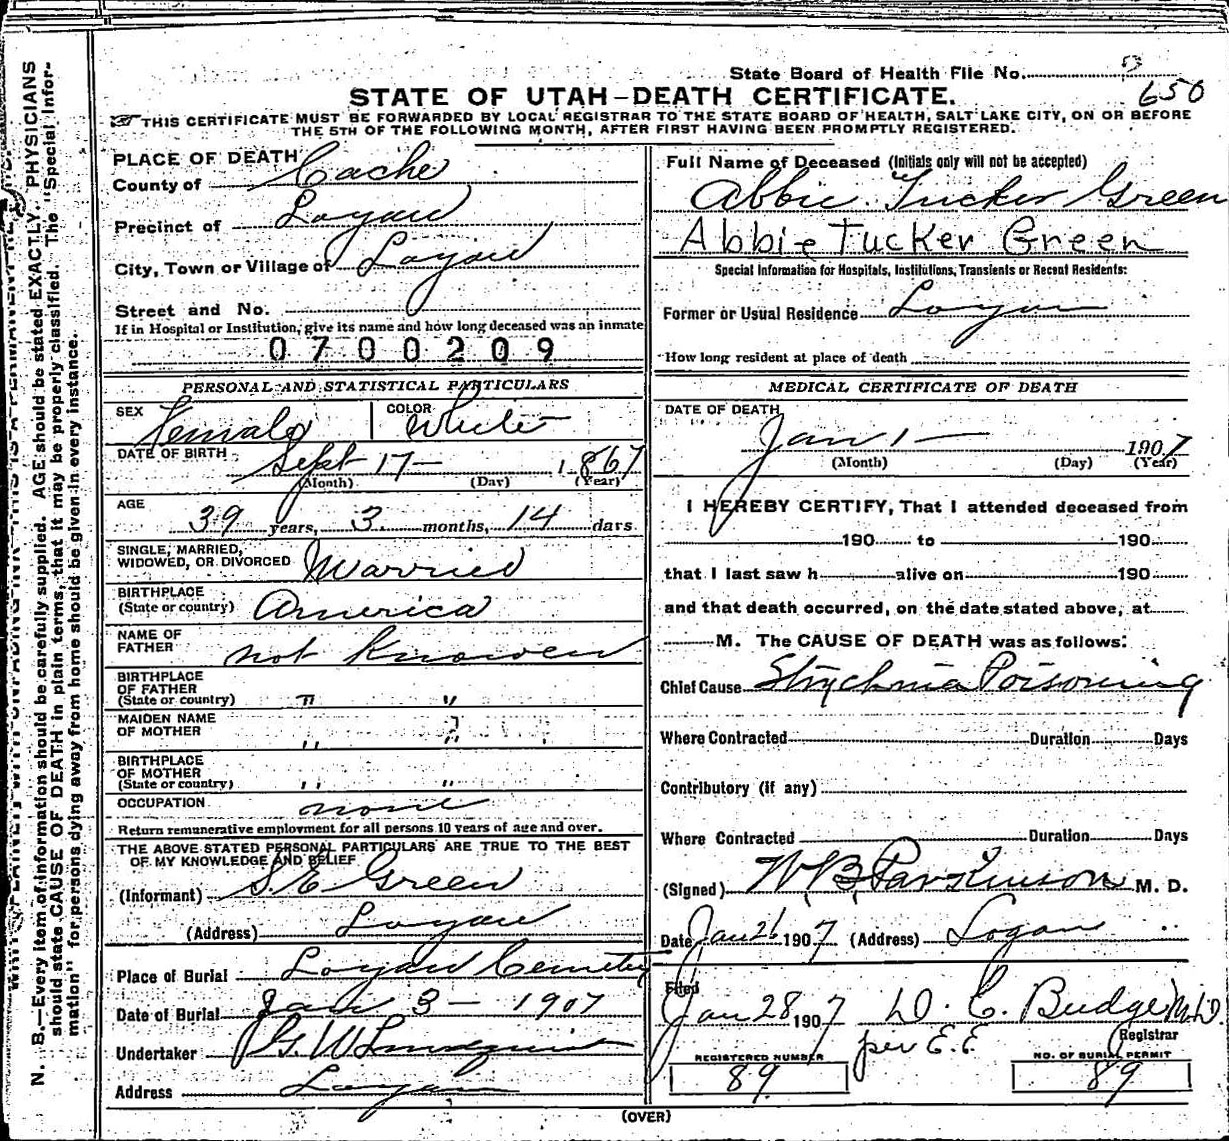 State Board of Health File No.
650
STATE OF UTAH—DEATH CERTIFICATE.
THIS CERTIFICATE MUST BE FORWARDED BY LOCAL REGISTRAR TO THE STATE BOARD OF HEALTH, SALT LAKE CITY, ON OR BEFORE
THE 5TH OF THE FOLLOWING MONTH, AFTER FIRST HAVING BEEN PROMPTLY REGISTERED.
N. B.—Every item of information should be carefully supplied. AGE should be stated EXACTLY. PHYSICIANS
should state CAUSE OF DEATH in plain terms, that it may be properly classified. The "Special Infor-
mation" for persons dying away from home should be given in every instance.
PLACE OF DEATH
County of Cache
Precinct of Logan
City, Town or Village of Logan
Street and No.
If in Hospital or Institution, give its name and how long deceased was an inmate
0700209
PERSONAL AND STATISTICAL PARTICULARS
SEX Female COLOR White
DATE OF BIRTH Sept 17 — 1867
(Month) (Day) (Year)
AGE
39 years, 3 months, 14 days
SINGLE, MARRIED,
WIDOWED, OR DIVORCED Married
BIRTHPLACE
(State or country) America
NAME OF
FATHER not Knowen
BIRTHPLACE
OF FATHER
(State or country) " "
MAIDEN NAME
OF MOTHER " "
BIRTHPLACE
OF MOTHER
(State or country) " "
OCCUPATION none
Return remunerative employment for all persons 10 years of age and over.
THE ABOVE STATED PERSONAL PARTICULARS ARE TRUE TO THE BEST
OF MY KNOWLEDGE AND BELIEF
(Informant) S. E Green
(Address) Logan
Place of Burial Logan Cemetery
Date of Burial Jan 3 — 1907
Undertaker G. W Lindquist
Address Logan
Full Name of Deceased (Initials only will not be accepted)
Abbie Tucker Green
Abbie Tucker Green
Special Information for Hospitals, Institutions, Transients or Recent Residents:
Former or Usual Residence Logan
How long resident at place of death
MEDICAL CERTIFICATE OF DEATH
DATE OF DEATH
Jan 1 — 1907
(Month) (Day) (Year)
I HEREBY CERTIFY, That I attended deceased from
190 to 190
that I last saw h alive on 190
and that death occurred, on the date stated above, at
M. The CAUSE OF DEATH was as follows:
Chief Cause Strychnia Poisoning
Where Contracted Duration Days
Contributory (if any)
Where Contracted Duration Days
(Signed) W B Parkinson M. D.
Date Jan 26 1907 (Address) Logan
Filed
Jan 28 1907 D. C. Budge M.D.
per E. E. Registrar
REGISTERED NUMBER
89
NO. OF BURIAL PERMIT
89
(OVER)